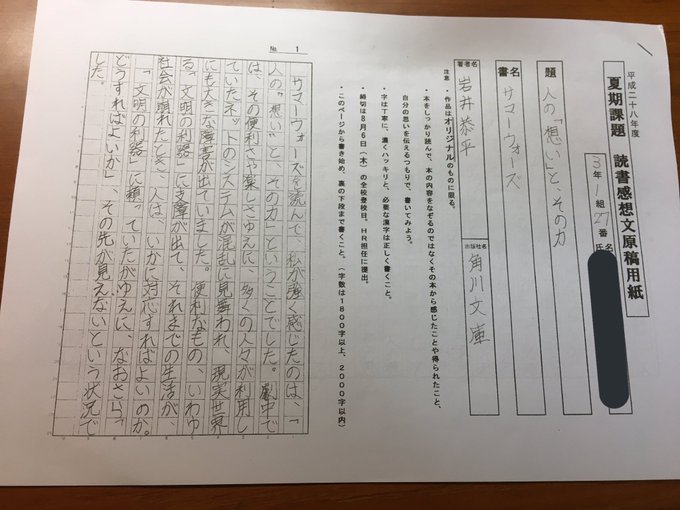 平成二十八年度
夏期課題　読書感想文原稿用紙
3年1組27番
氏名
題　人の「想い」と、その力
書名　サマーウォーズ
著者名　岩井恭平
出版社名　角川文庫
注意
・作品はオリジナルのものに限る。
・本をしっかり読んで、本の内容をなぞるのではなくその本から感じたことや得られたこと、
自分の思いを伝えるつもりで、書いてみよう。
・字は丁寧に、濃くハッキリと、必要な漢字は正しく書くこと。
・締切は8月6日（木）の全校登校日。HR担任に提出。
・このページから書き始め、裏の下段まで書くこと。（字数は1800字以上、2000字以内）
№ 1
「サマーウォーズ」を読んで、私が強く感じたのは、「
人の"想い"と、その力」ということでした。劇中で
は、その便利さや楽しさゆえに、多くの人々が利用し
ていたネットのシステムが混乱に見舞われ、現実世界
にも大きな障害が出ていました。便利なもの、いわゆ
る「文明の利器」に支障が出て、それまでの生活が、
社会が崩れたとき、人は、いかに対応すればよいのか。
「文明の利器」に頼っていたがゆえに、なおさら「
どうすればよいか」、その先が見えないという状況で
した。